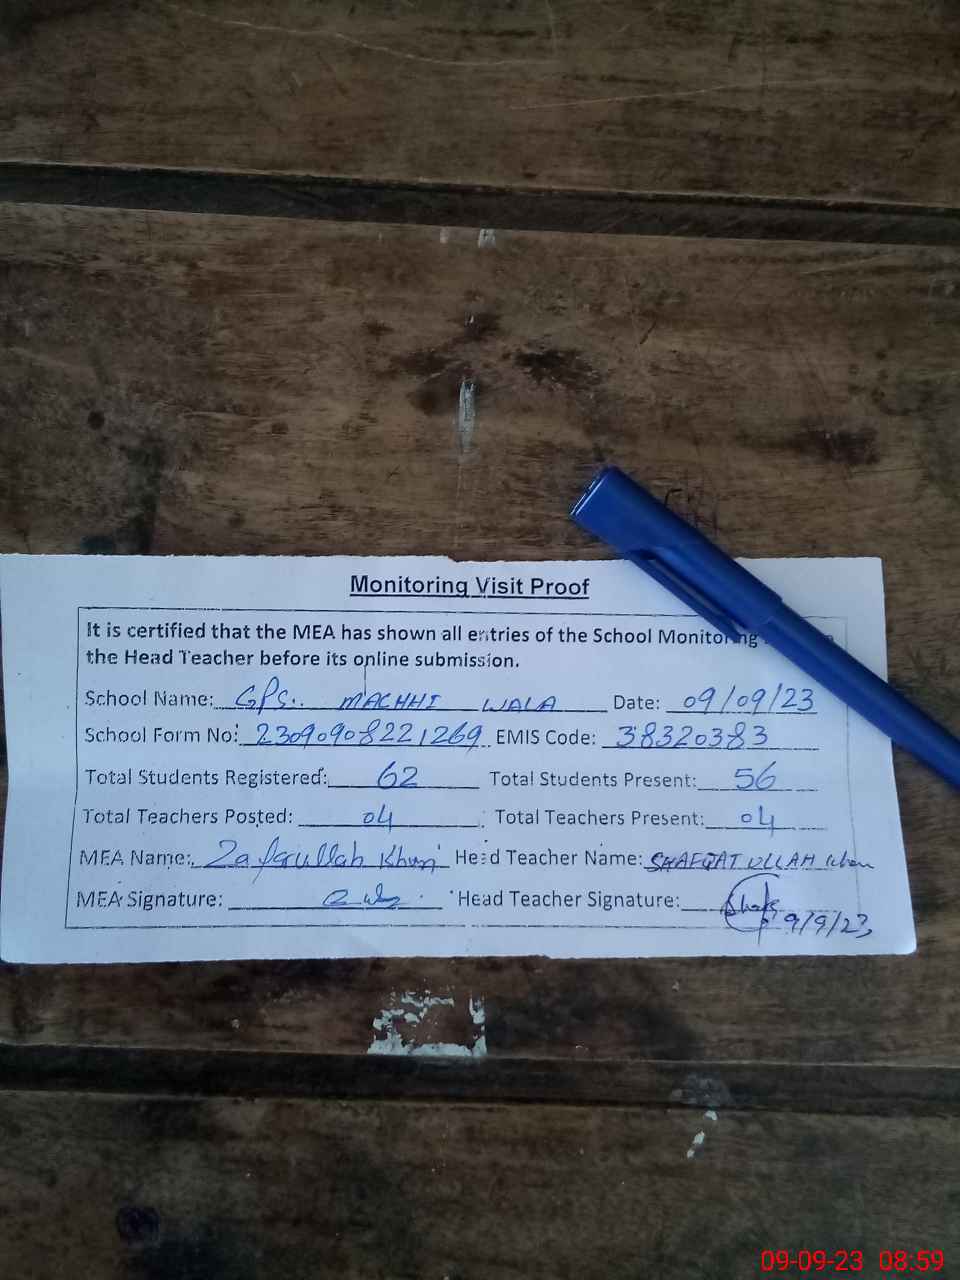 Monitoring Visit Proof
It is certified that the MEA has shown all entries of the School Monitoring
the Head Teacher before its online submission.
School Name: GPS. MACHHI WALA Date: 09/09/23
School Form No: 23090908221269 EMIS Code: 38320383
Total Students Registered: 62 Total Students Present: 56
Total Teachers Posted: 04 Total Teachers Present: 04
MEA Name: Zafarullah Khan Head Teacher Name: SHAFQAT ULLAH Khan
MEA Signature: Head Teacher Signature: 9/9/23
09-09-23 08:59